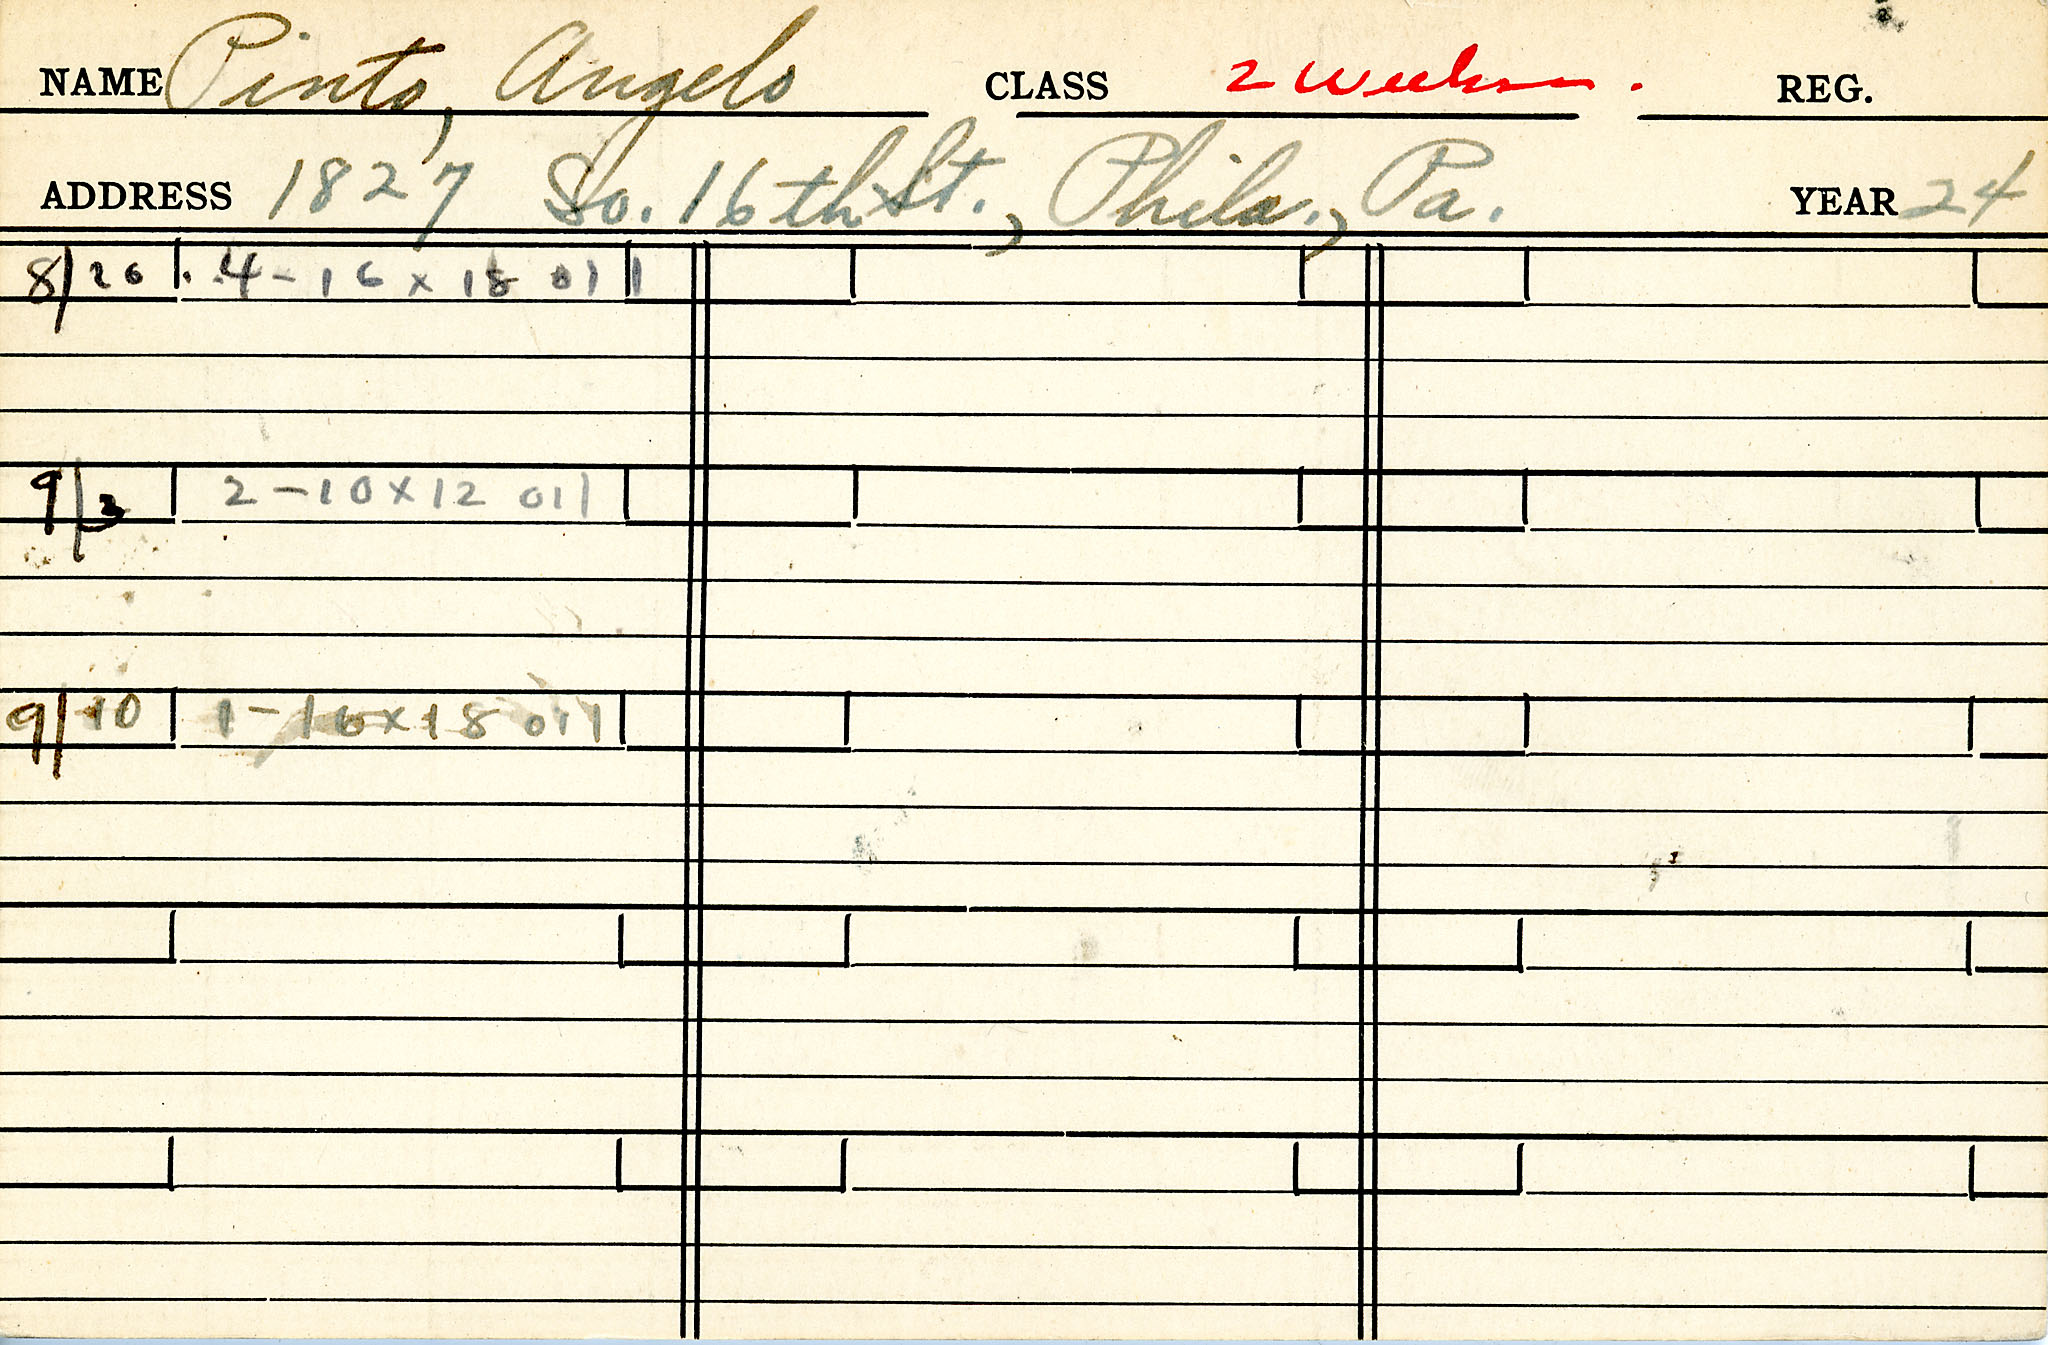 NAME Pinto, Angelo CLASS 2 weeks. REG.
ADDRESS 1827 So. 16th St., Phila., Pa. YEAR 24
8/26 4-16x18 oil
9/3 2-10x12 oil
9/10 1-16x18 oil